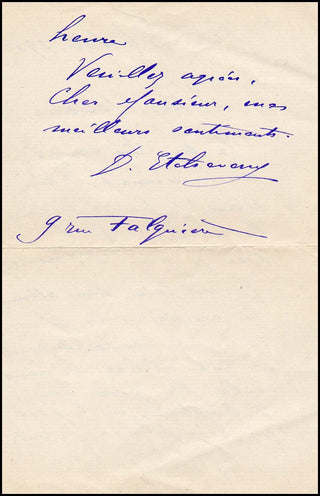 heure
Veuillez agréer,
Cher Monsieur, mes
meilleurs sentiments.
D. Etcheverry
9 rue Falguière